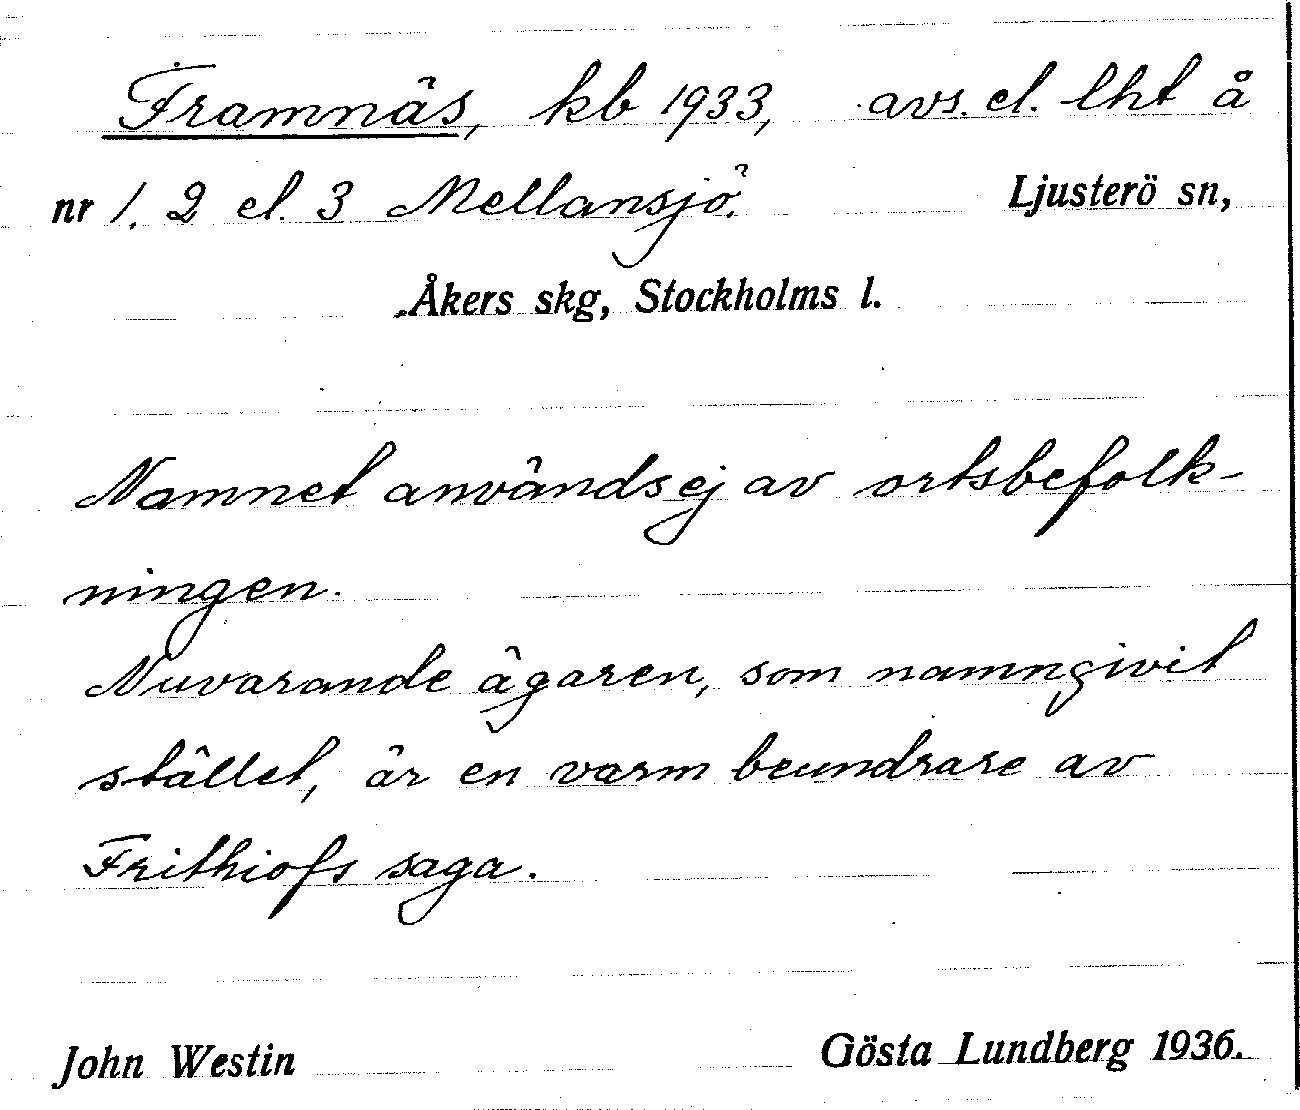 Framnäs, kb 1933, avs. el. lht å
nr 1, 2 el. 3 Mellansjö. Ljusterö sn,
Åkers skg, Stockholms l.
Namnet användsej av ortsbefolk-
ningen.
Nuvarande ägaren, som namngivit
stället, är en varm beundrare av
Frithiofs saga.
John Westin Gösta Lundberg 1936.